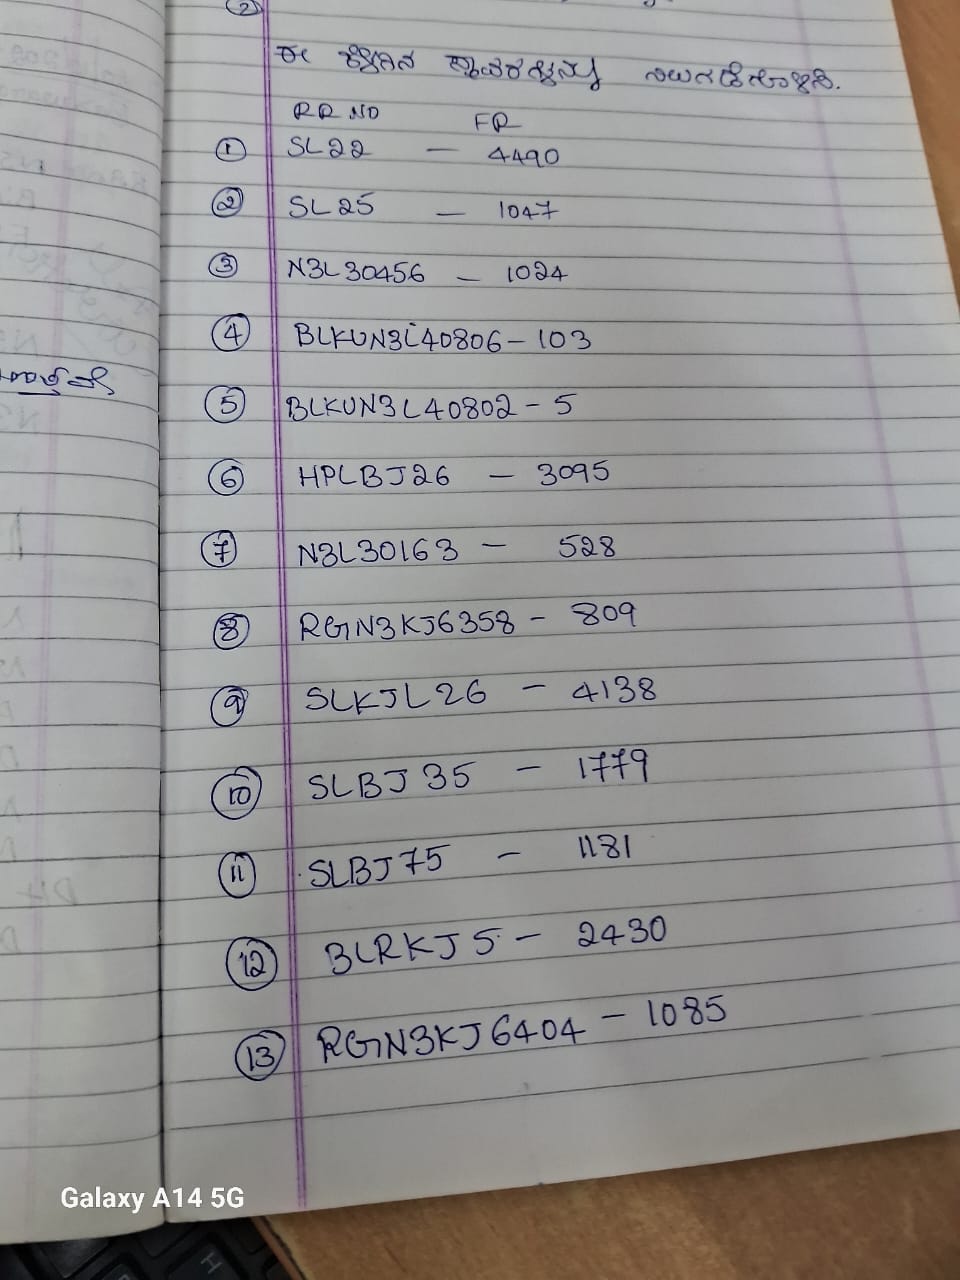 ②
ಈ ಕೆಳಗಿನ ಸ್ಥಾವರಗಳನ್ನು
RR NO FR
① SL22 — 4490
② SL25 — 1047
③ N3L30456 — 1024
④ BLKUN3L40806 - 103
⑤ BLKUN3L40802 - 5
⑥ HPLBJ26 — 3095
⑦ N3L30163 — 528
⑧ RGN3KJ6358 - 809
⑨ SLKJL26 — 4138
⑩ SLBJ35 — 1779
⑪ SLBJ75 — 1181
⑫ BLRKJ5 - 2430
⑬ RGN3KJ6404 - 1085
Galaxy A14 5G